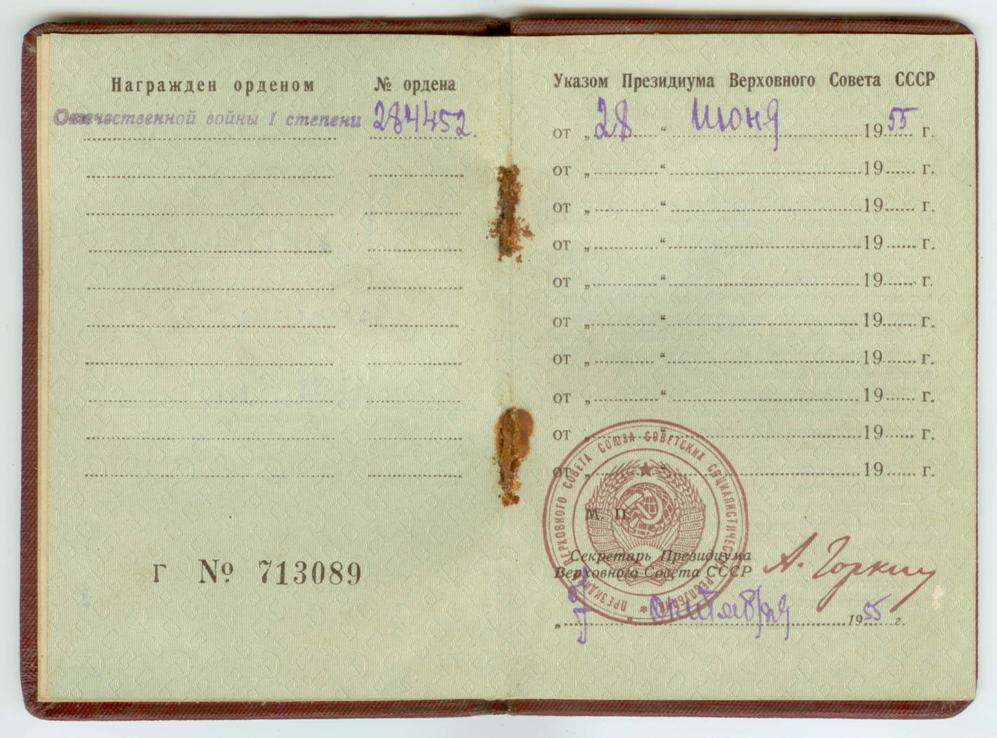 Награжден орденом № ордена
Отечественной войны I степени 284452.
Г № 713089
Указом Президиума Верховного Совета СССР
от „ 28 “ июня 1955 г.
от „ “ 19 г.
от „ “ 19 г.
от „ “ 19 г.
от „ “ 19 г.
от „ “ 19 г.
от „ “ 19 г.
от „ “ 19 г.
от „ “ 19 г.
от „ “ 19 г.
ПРЕЗИДИУМ ВЕРХОВНОГО СОВЕТА СОЮЗА СОВЕТСКИХ СОЦИАЛИСТИЧЕСКИХ РЕСПУБЛИК
М. П.
Секретарь Президиума
Верховного Совета СССР А. Горкин
„ 7 “ октября 1955 г.